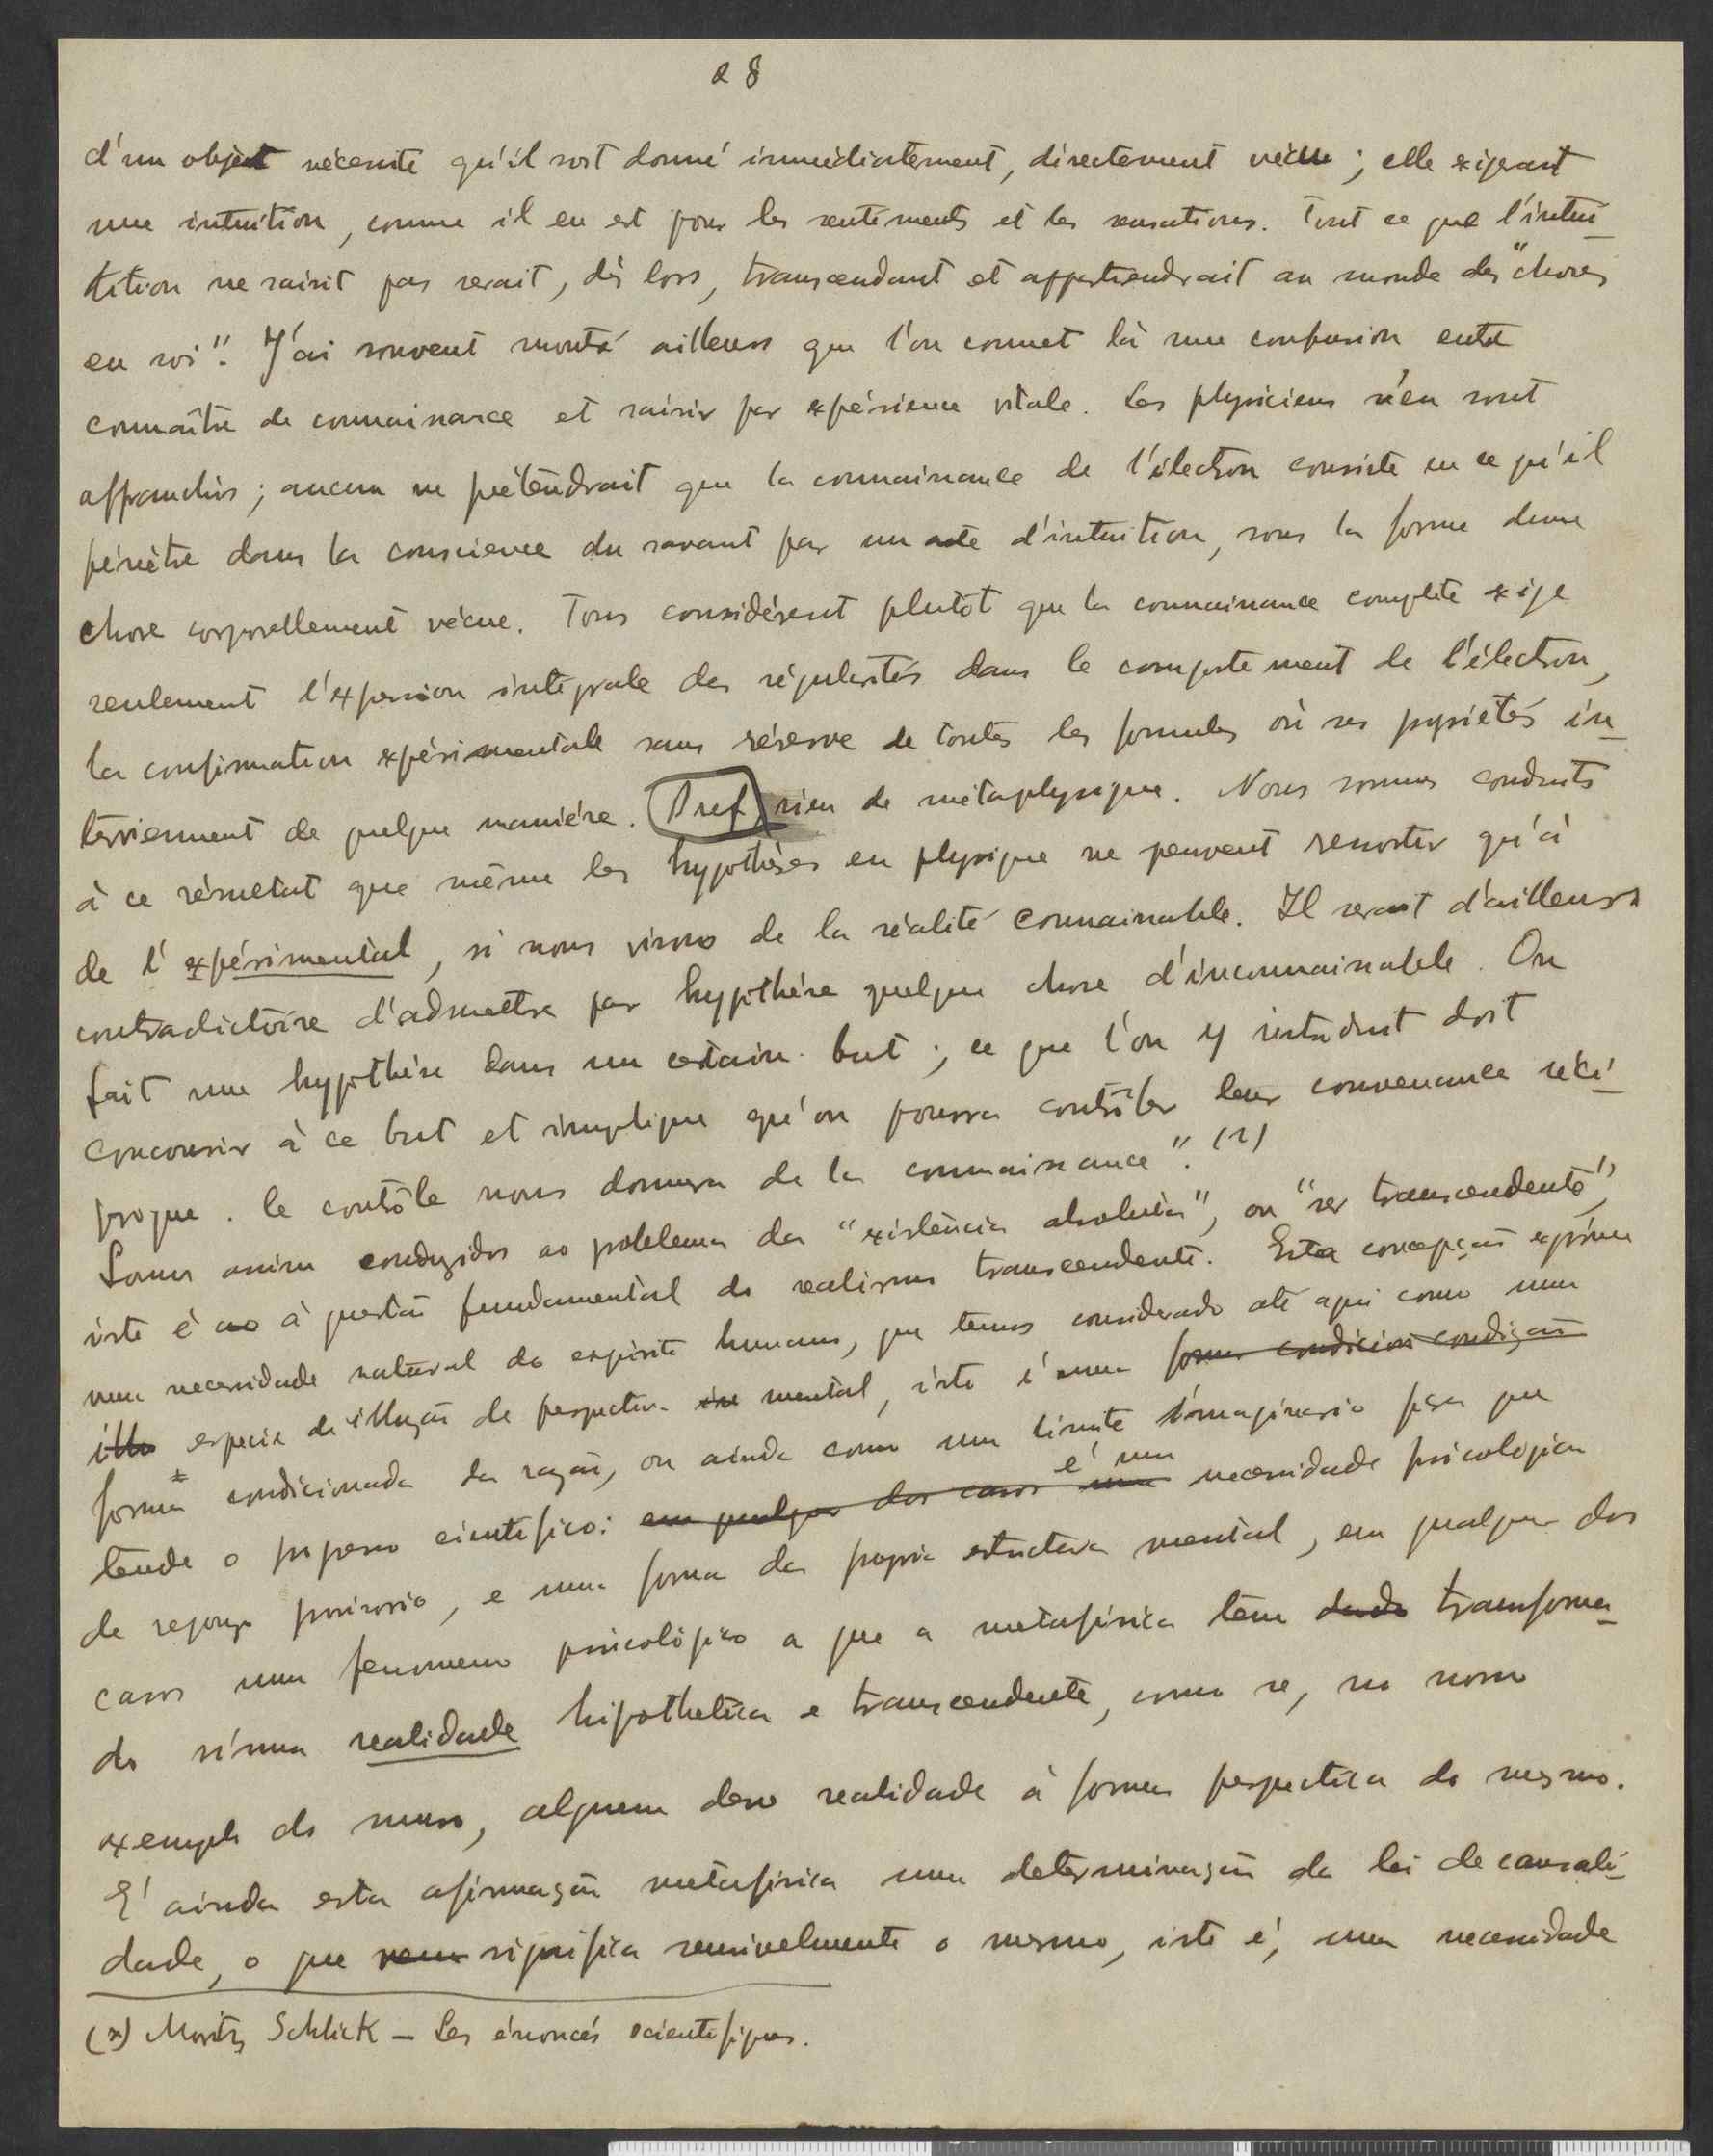 28
d'un objet nécessite qu'il soit donné immédiatement, directement vécu; elle exigerait
une intuition, comme il en est pour les sentiments et les sensations. Tout ce que l'intui-
tition ne saisit pas serait, dès lors, transcendant et appartiendrait au monde des "choses
en soi". J'ai souvent montré ailleurs que l'on commet là une confusion entre
connaître de connaissance et saisir par expérience vitale. Les physiciens s'en sont
affranchis; aucun ne prétendrait que la connaissance de l'électron consiste en ce qu'il
pénètre dans la conscience du savant par un acte d'intuition, sous la forme d'une
chose corporellement vécue. Tous considérent plutôt que la connaissance complète exige
seulement l'expression intégrale des régularités dans le comportement de l'électron,
la confirmation expérimentale sans réserve de toutes les formules où ses propriétés in-
terviennent de quelque manière. Bref, rien de métaphysique. Nous sommes conduits
à ce résultat que même les hypothèses en physique ne peuvent ressortir qu'à
de l'expérimental, si nous visons de la réalité connaissable. Il serait d'ailleurs
contradictoire d'admettre par hypothèse quelque chose d'inconnaissable. On
fait une hypothèse dans un certain but; ce que l'on y introduit doit
concourir à ce but et implique qu'on pourra contrôler leur convenance réci-
proque. le contrôle nous donnera de la connaissance". (1)
Somos assim conduzidos ao problema da "existência absoluta", ou "ser transcendente",
isto é ao à questão fundamental do realismo transcendente. Esta concepção exprime
uma necessidade natural do espirito humano, que temos considerado até aqui como uma
illu especie de illuzão de perspectiva in mental, isto é uma forma condicion condição
forma condicionada da razão, ou ainda como um limite imaginario para que
tende o progresso cientifico: em qualquer dos casos uma é uma necessidade psicologica
de repouso provisorio, e uma forma da propria estructura mental, em qualquer dos
casos um fenomeno psicológico a que a metafisica tem dado transforma-
do n'uma realidade hipothetica e transcendente, como se, no nosso
exemplo do muro, alguem desse realidade à forma perspectica do mesmo.
E' ainda esta afirmação metafisica uma determinação da lei de causali-
dade, o que vem significa sensivelmente o mesmo, isto é, uma necessidade
(1) Moritz Schlick - Les énoncés scientifiques.